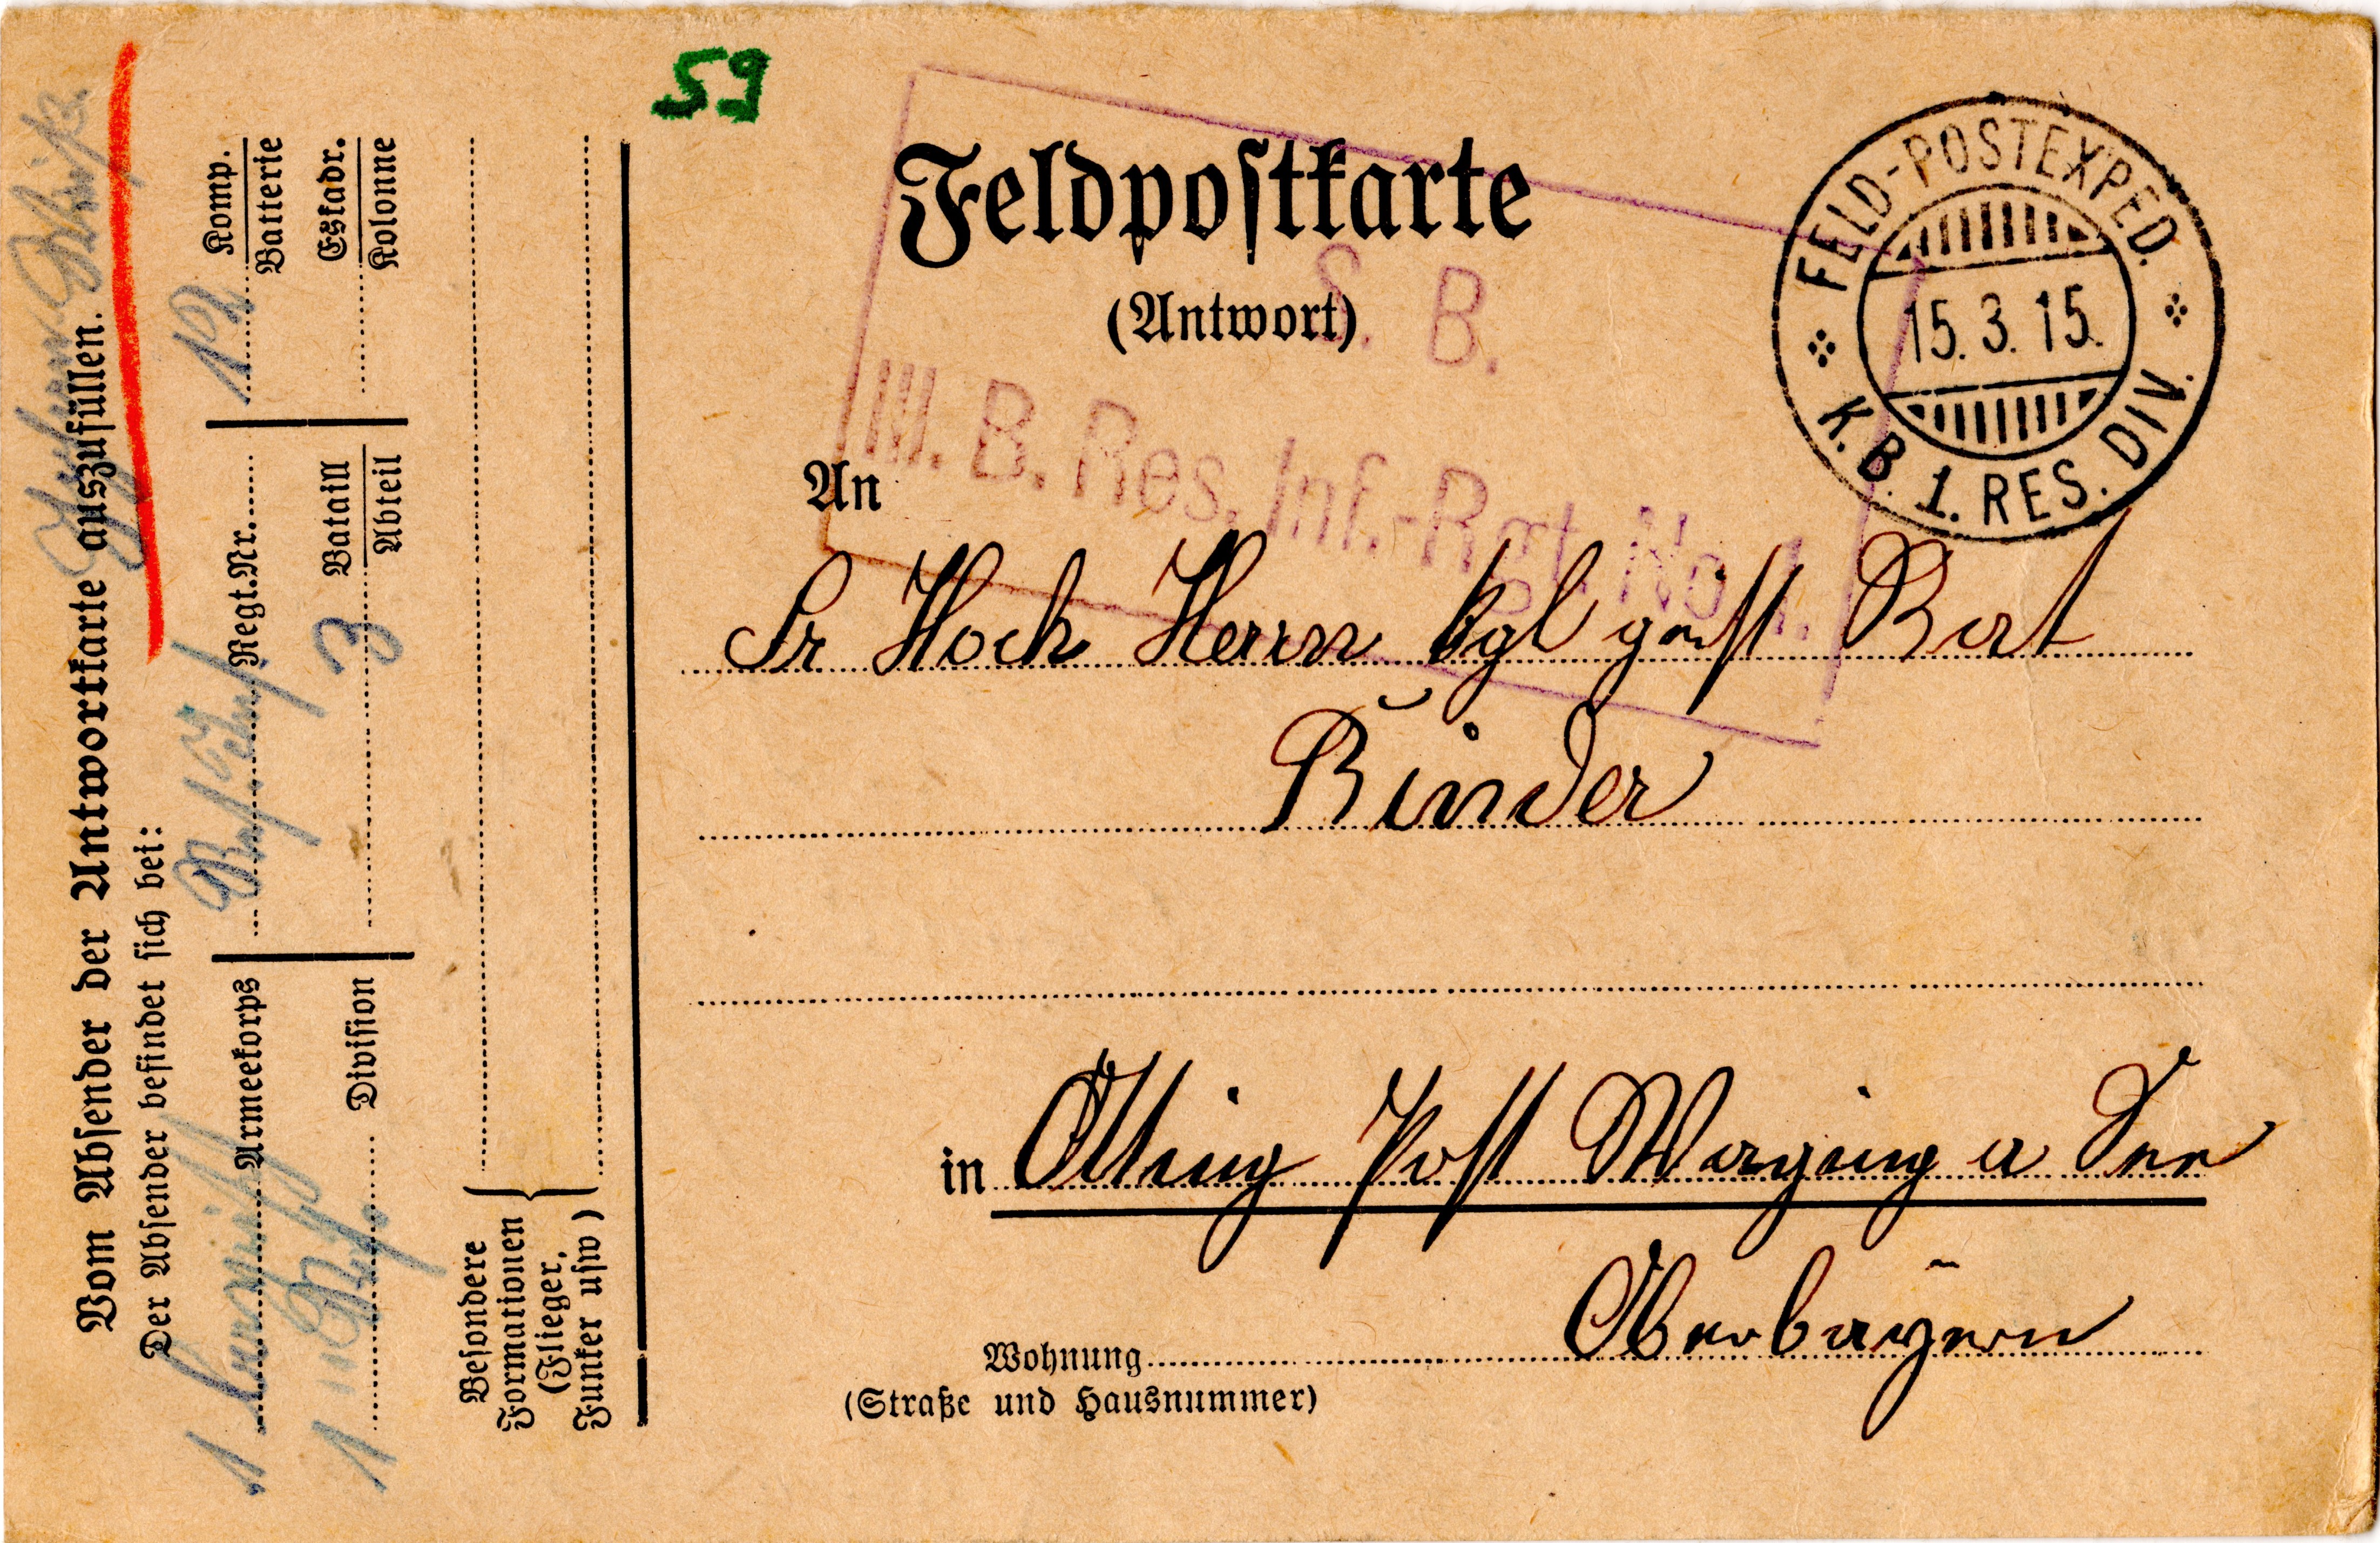 59
Feldpostkarte
(Antwort)
FELD-POSTEXPED.
15.3.15.
K.B. 1. RES. DIV.
S. B.
III. B. Res. Inf.-Rgt. No 1.
An
Sr Hoch Herrn kgl geist Rat
Binder
in Otting Post Waging a See
Oberbayern
Wohnung
(Straße und Hausnummer)
Vom Absender der Antwortkarte auszufüllen.
Der Absender befindet sich bei:
1 Armeekorps
Regt.Nr.
12 Komp.
Batterie
1 Res. Division
3 Bataill
Abteil
Eskadr.
Kolonne
Besondere
Formationen
(Flieger,
Funker usw)